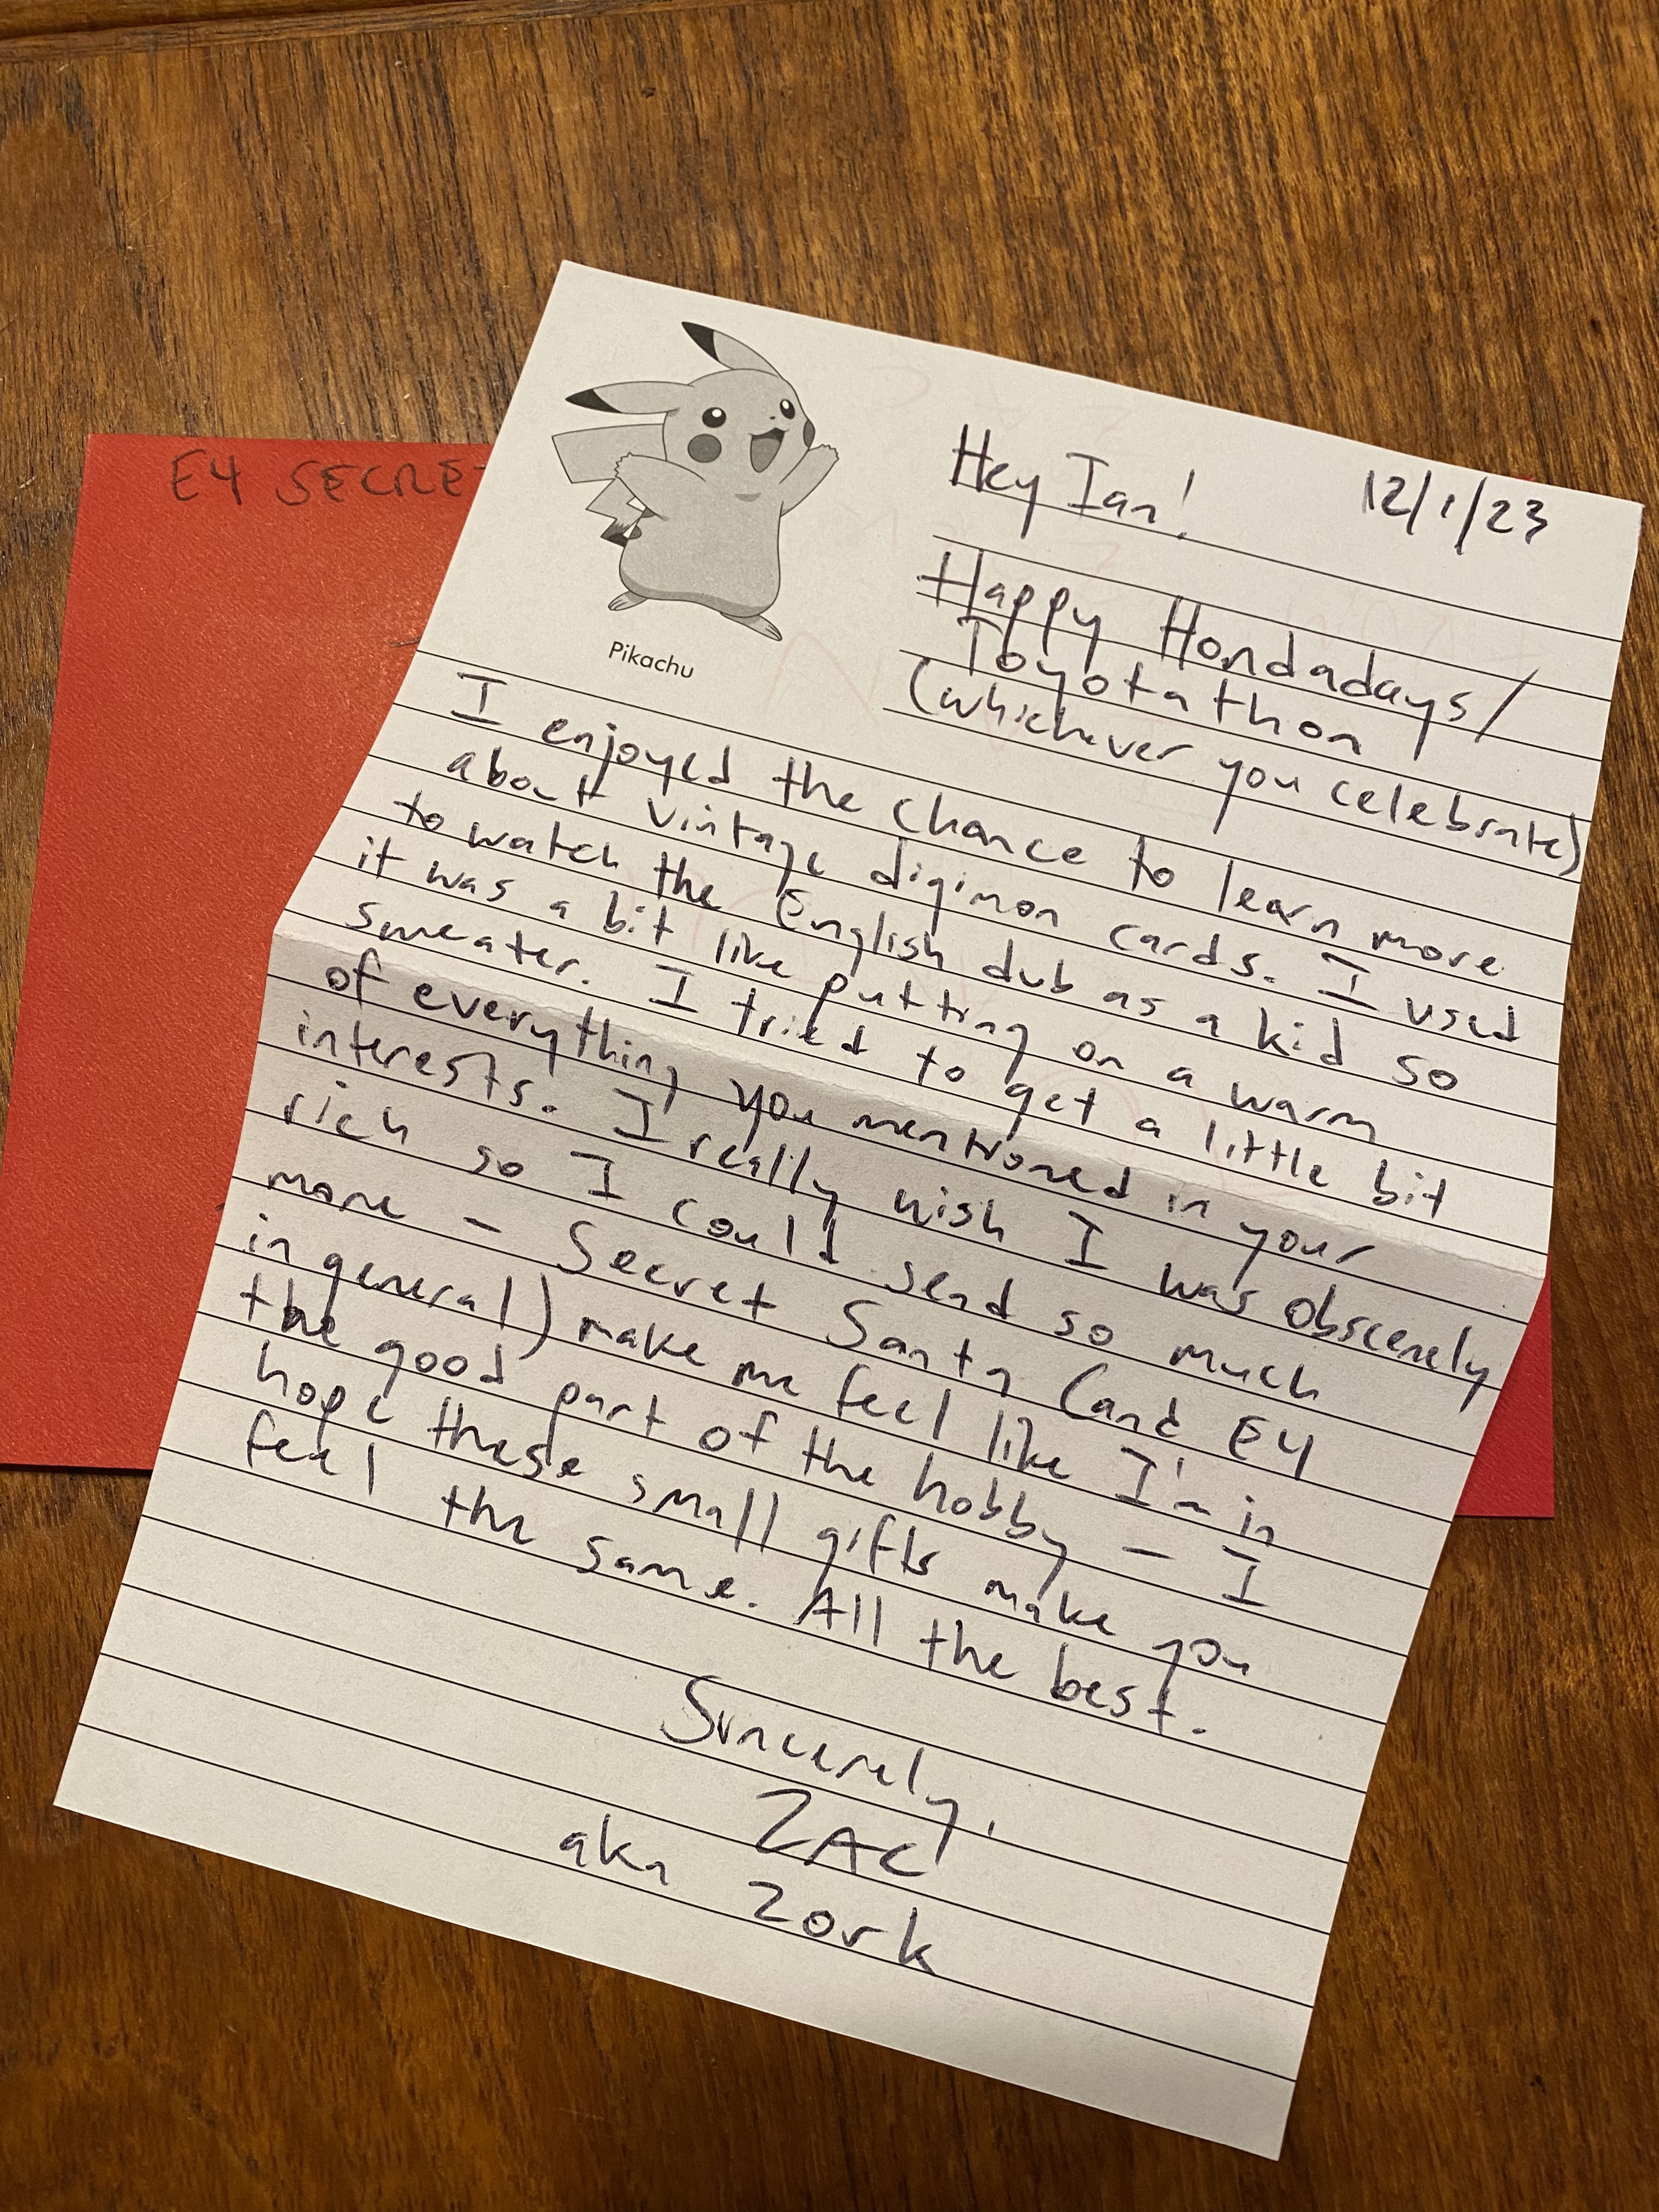 E4 SECRE
Pikachu
Hey Ian! 12/1/23
Happy Hondadays/
Toyotathon
(whichever you celebrate)
I enjoyed the chance to learn more
about vintage digimon cards. I used
to watch the English dub as a kid so
it was a bit like putting on a warm
sweater. I tried to get a little bit
of everything you mentioned in your
interests. I really wish I was obscenely
rich so I could send so much
more – Secret Santa (and E4
in general) make me feel like I'm in
the good part of the hobby – I
hope these small gifts make you
feel the same. All the best.
Sincerely,
ZAC
aka Zork